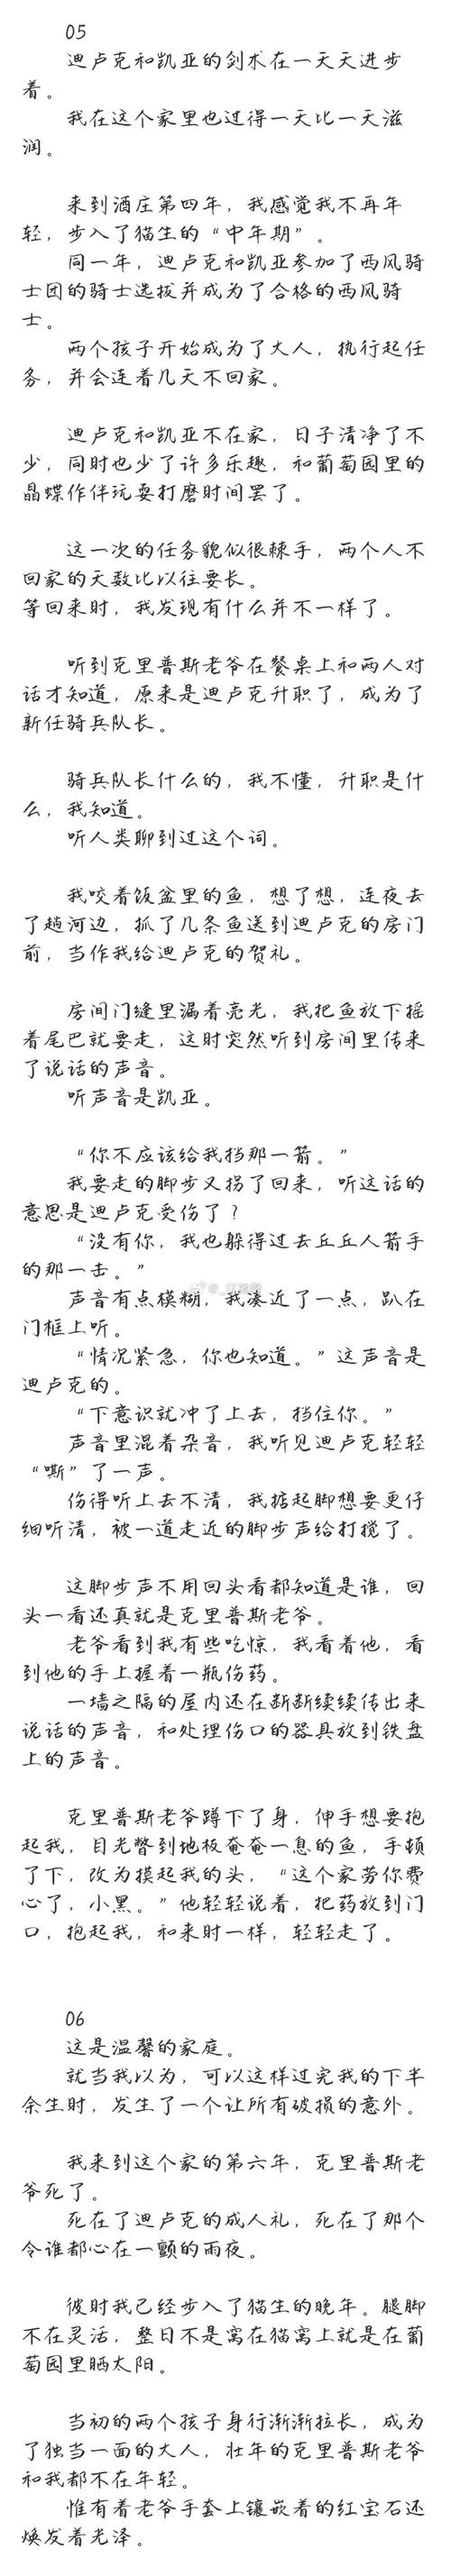 05
迪卢克和凯亚的剑术在一天天进步
着。
我在这个家里也过得一天比一天滋
润。
来到酒庄第四年，我感觉我不再年
轻，步入了猫生的“中年期”。
同一年，迪卢克和凯亚参加了西风骑
士团的骑士选拔并成为了合格的西风骑
士。
两个孩子开始成为了大人，执行起任
务，并会连着几天不回家。
迪卢克和凯亚不在家，日子清净了不
少，同时也少了许多乐趣，和葡萄园里的
晶蝶作伴玩耍打磨时间罢了。
这一次的任务貌似很棘手，两个人不
回家的天数比以往要长。
等回来时，我发现有什么并不一样了。
听到克里普斯老爷在餐桌上和两人对
话才知道，原来是迪卢克升职了，成为了
新任骑兵队长。
骑兵队长什么的，我不懂，升职是什
么，我知道。
听人类聊到过这个词。
我咬着饭盆里的鱼，想了想，连夜去
了趟河边，抓了几条鱼送到迪卢克的房门
前，当作我给迪卢克的贺礼。
房间门缝里漏着亮光，我把鱼放下摇
着尾巴就要走，这时突然听到房间里传来
了说话的声音。
听声音是凯亚。
“你不应该给我挡那一箭。”
我要走的脚步又拐了回来，听这话的
意思是迪卢克受伤了？
“没有你，我也躲得过去丘丘人箭手
的那一击。”
声音有点模糊，我凑近了一点，趴在
门框上听。
“情况紧急，你也知道。”这声音是
迪卢克的。
“下意识就冲了上去，挡住你。”
声音里混着杂音，我听见迪卢克轻轻
“嘶”了一声。
伤得听上去不清，我掂起脚想要更仔
细听清，被一道走近的脚步声给打搅了。
这脚步声不用回头看都知道是谁，回
头一看还真就是克里普斯老爷。
老爷看到我有些吃惊，我看着他，看
到他的手上握着一瓶伤药。
一墙之隔的屋内还在断断续续传出来
说话的声音，和处理伤口的器具放到铁盘
上的声音。
克里普斯老爷蹲下了身，伸手想要抱
起我，目光瞥到地板奄奄一息的鱼，手顿
了下，改为摸起我的头，“这个家劳你费
心了，小黑。”他轻轻说着，把药放到门
口，抱起我，和来时一样，轻轻走了。
06
这是温馨的家庭。
就当我以为，可以这样过完我的下半
余生时，发生了一个让所有破损的意外。
我来到这个家的第六年，克里普斯老
爷死了。
死在了迪卢克的成人礼，死在了那个
令谁都心在一颤的雨夜。
彼时我已经步入了猫生的晚年。腿脚
不在灵活，整日不是窝在猫窝上就是在葡
萄园里晒太阳。
当初的两个孩子身行渐渐拉长，成为
了独当一面的大人，壮年的克里普斯老爷
和我都不在年轻。
惟有着老爷手套上镶嵌着的红宝石还
焕发着光泽。